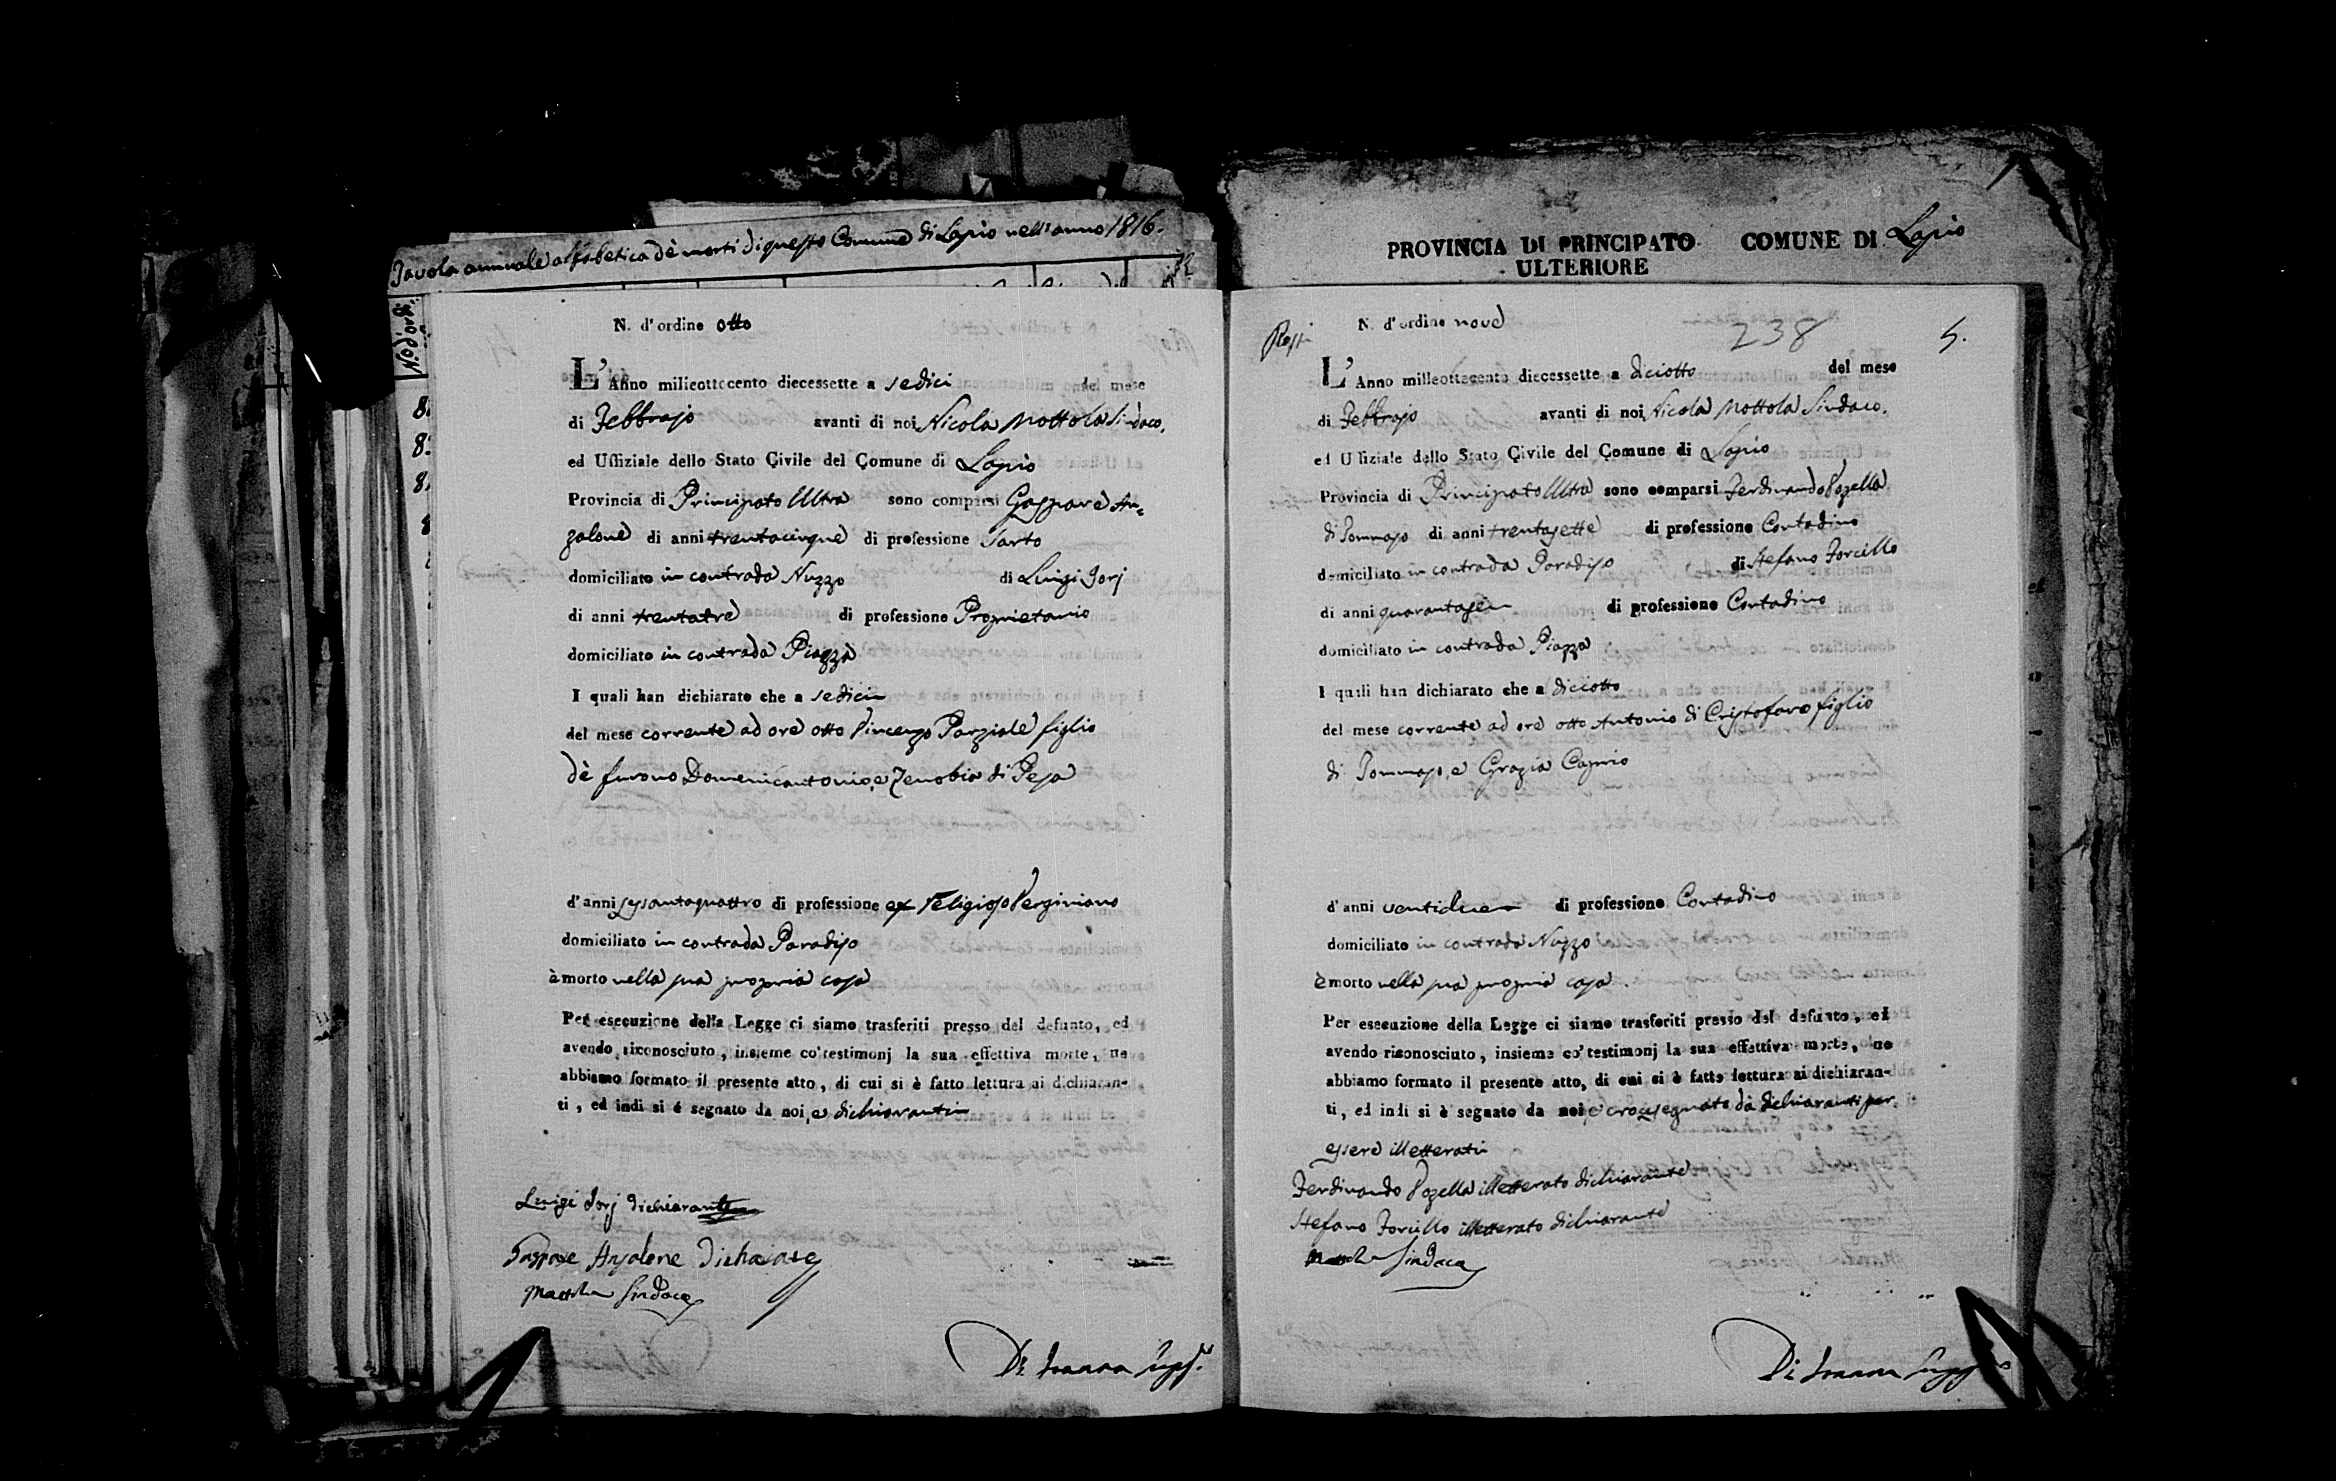 Tavola annuale alfabetica dè morti di questo Comune di Lapio nell'anno 1816.
N. d'ord.
N. d'ordine otto
L'Anno milleottocento diecessette a sedici del mese
di Febbrajo avanti di noi Nicola Mottola Sindaco,
ed Uffiziale dello Stato Civile del Comune di Lapio
Provincia di Principato Ultra sono comparsi Gaspare An=
zalone di anni trentacinque di professione Sarto
domiciliato in contrada Nuzzo di Luigi Jorj
di anni trentatre di professione Proprietario
domiciliato in contrada Piazza
I quali han dichiarato che a sedici
del mese corrente ad ore otto Vincenzo Parziale figlio
dè furono Domenicantonio, e Zenobia di Pesa
d'anni sessantaquattro di professione ex Religioso Verginiano
domiciliato in contrada Paradiso
è morto nella sua propria casa
Per esecuzione della Legge ci siamo trasferiti presso del defunto, ed
avendo riconosciuto, insieme co'testimonj la sua effettiva morte, ne
abbiamo formato il presente atto, di cui si è fatto lettura ai dichiaran-
ti, ed indi si è segnato da noi, e dichiaranti
Luigi Jorj dichiarante
Gaspare Anzalone
Mottola Sindaco
PROVINCIA DI PRINCIPATO COMUNE DI Lapio
ULTERIORE
N. d'ordine nove
238
5.
L'Anno milleottocento diecessette a diciotto del mese
di Febbrajo avanti di noi Nicola Mottola Sindaco,
ed Uffiziale dello Stato Civile del Comune di Lapio
Provincia di Principato Ultra sono comparsi Ferdinando Vozella
di Tommaso di anni trentasette di professione Contadino
domiciliato in contrada Paradiso di Stefano Forcillo
di anni quarantasei di professione Contadino
domiciliato in contrada Piazza
I quali han dichiarato che a diciotto
del mese corrente ad ore otto Antonio di Cristofaro figlio
di Tommaso, e Grazia Caprio
d'anni ventidue di professione Contadino
domiciliato in contrada Nuzzo
è morto nella sua propria casa.
Per esecuzione della Legge ci siamo trasferiti presso del defunto, ed
avendo riconosciuto, insieme co'testimonj la sua effettiva morte, ne
abbiamo formato il presente atto, di cui si è fatto lettura ai dichiaran-
ti, ed indi si è segnato da noi e crocesegnato da dichiaranti per
essere illetterati
Ferdinando Vozella illetterato dichiarante
Stefano Forcillo illetterato dichiarante
Mottola Sindaco